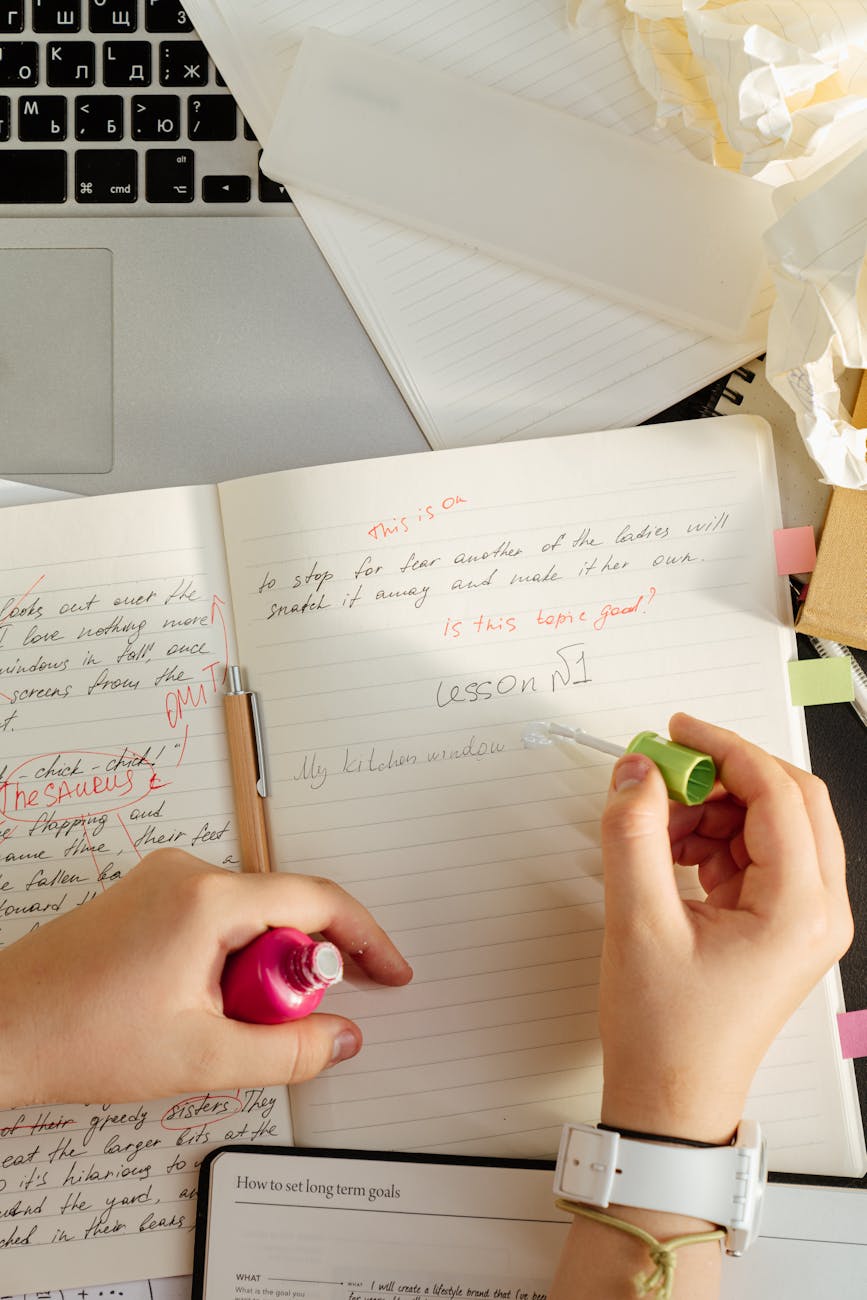 Г Ш Щ З
О Л Д Ж
Ь Б Ю
M < > ?
alt
⌘ cmd ⌥
this is on
to stop for fear another of the ladies will
snatch it away and make it her own.
is this topic good?
Lesson №1
My kitchen window
looks out over the
I love nothing more
windows in fall, once
screens from the
OMIT
-chick-chick!"
Thesaurus
flapping and
same time, their feet
fallen
toward
of their greedy sisters! They
eat the larger bits at the
it's hilarious to
and the yard,
in their beaks,
How to set long term goals
WHAT
What is the goal you
WHAT I will create a lifestyle brand that I've been